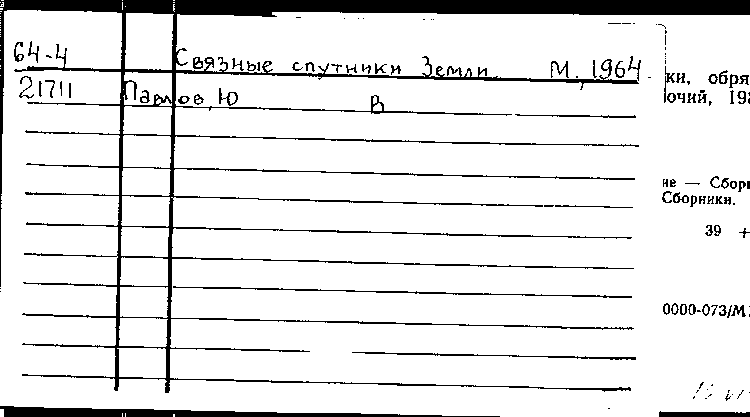 64-4 Связные спутники Земли М., 1964
21711 Павлов, Ю В
ки, обря
очий, 198
ие — Сбор
Сборники.
39 +
0000-073/М